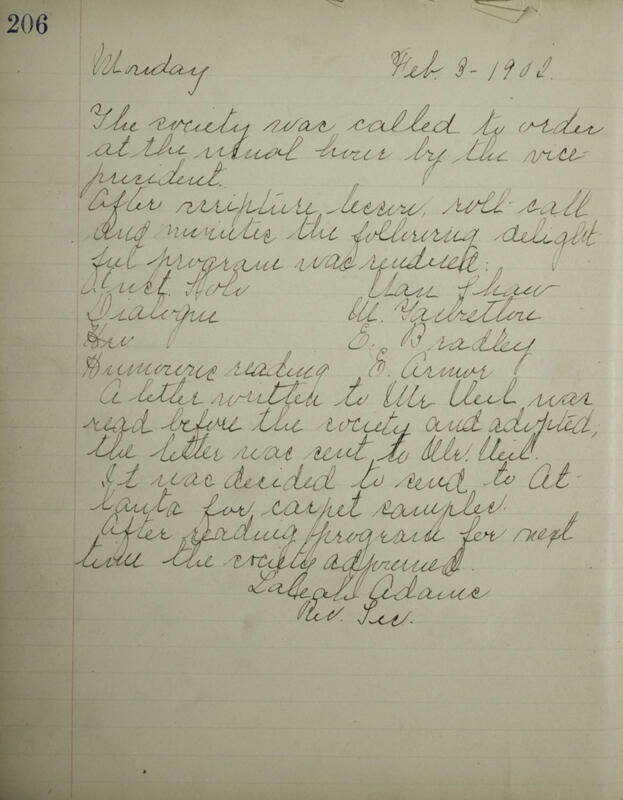 206
Monday Feb. 3 - 1902.
The society was called to order
at the usual hour by the vice-
president.
After scripture lesson, roll-call
and minutes the following delight
ful program was rendered:
Inst. Solo Nan Shaw
Dialogue M. Tarbetton
E. Bradley
Humorous reading E. Armor
A letter written to Mr Neil was
read before the society and adopted;
the letter was sent to Mr. Neil.
It was decided to send to At-
lanta for carpet samples.
After reading program for next
time the society adjourned.
Laleah Adams
Rec. Sec.